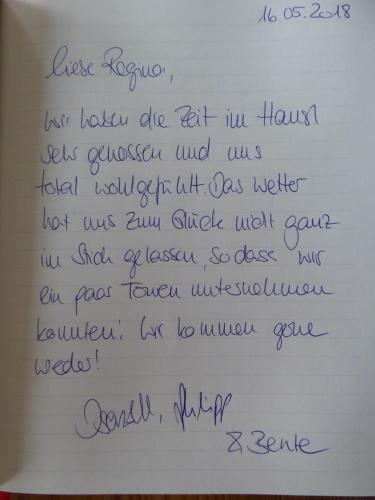 16.05.2018
Liebe Regina,
wir haben die Zeit im Hausl
sehr genossen und uns
total wohlgefühlt. Das Wetter
hat uns zum Glück nicht ganz
im Stich gelassen, sodass wir
ein paar Touren unternehmen
konnten! Wir kommen gerne
wieder!
Philipp
& Bente